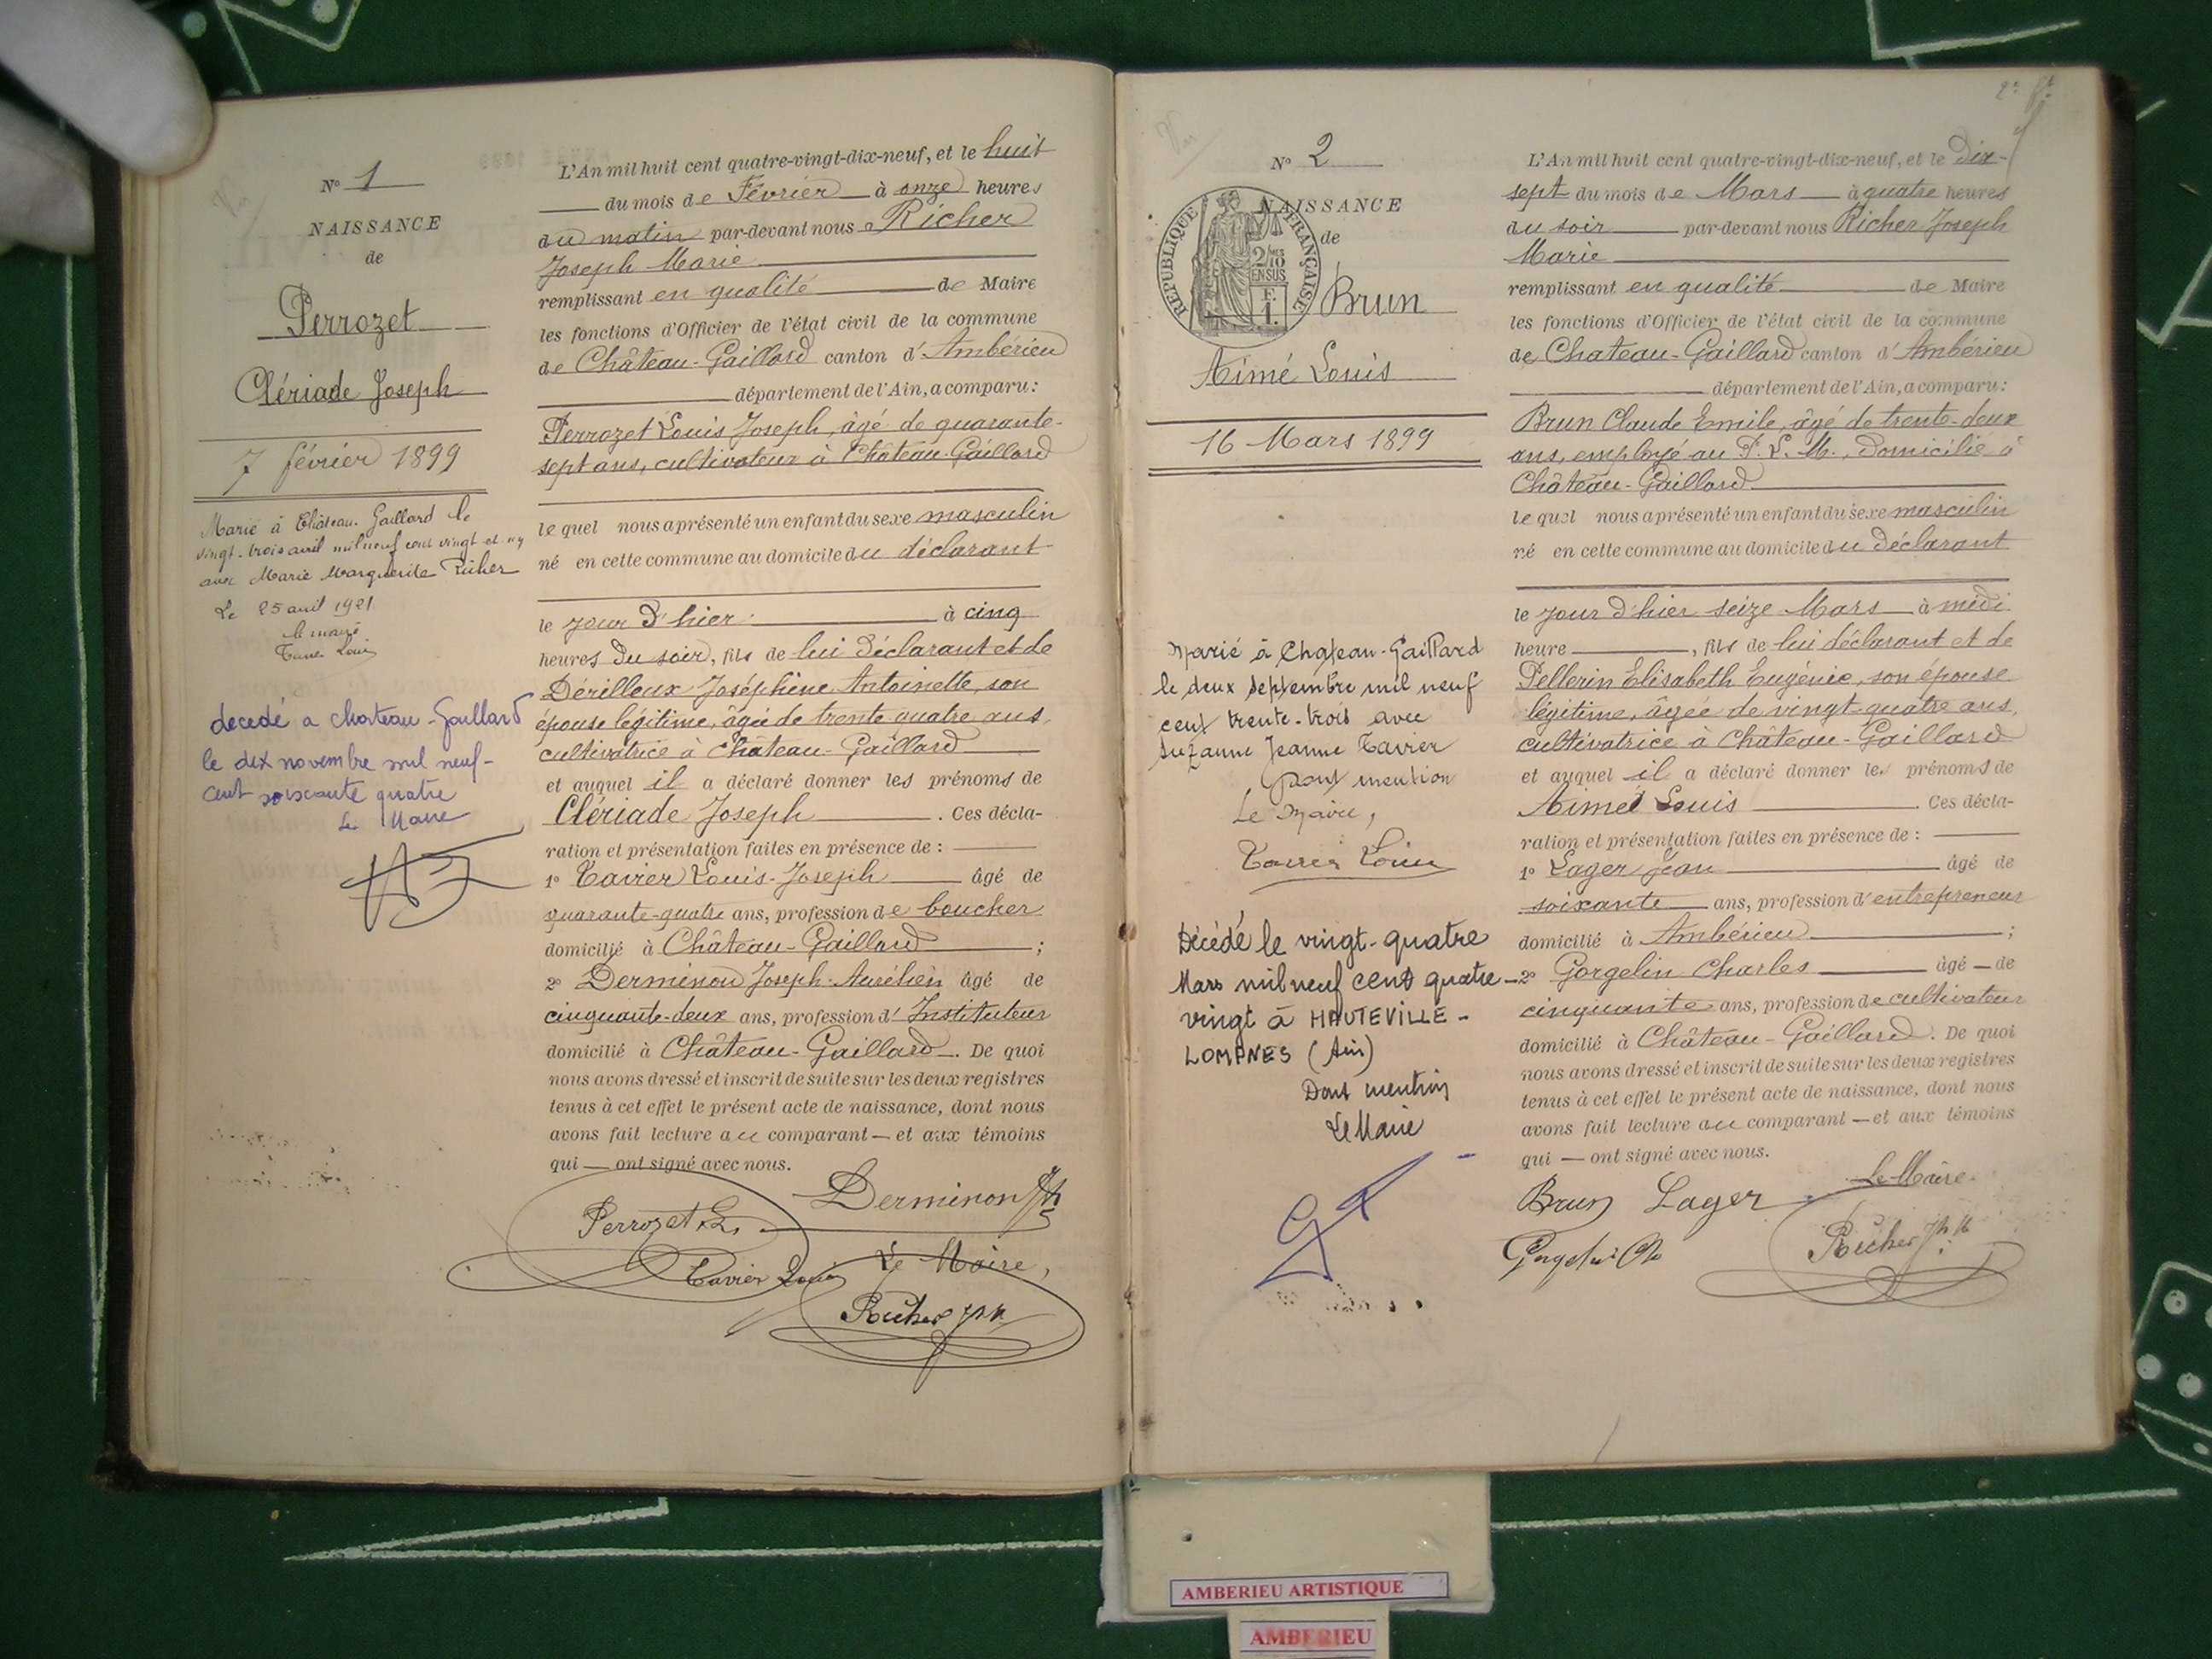 N° 1
NAISSANCE
de
Perrozet
Clériade Joseph
7 février 1899
Marié à Château-Gaillard le
vingt-trois avril mil neuf cent vingt et un
avec Marie Marguerite Richer
Le 25 avril 1921
le maire
Tavier Louis
decedé a chateau-Gaillard
le dix novembre mil neuf-
cent soixante quatre
Le Maire
L'An mil huit cent quatre-vingt-dix-neuf, et le huit
du mois de Février à onze heures
du matin par-devant nous Richer
Joseph Marie
remplissant en qualité de Maire
les fonctions d'Officier de l'état civil de la commune
de Château-Gaillard canton d'Ambérieu
département de l'Ain, a comparu:
Perrozet Louis Joseph, âgé de quarante-
sept ans, cultivateur à Château-Gaillard
le quel nous a présenté un enfant du sexe masculin
né en cette commune au domicile du déclarant
le jour d'hier à cinq
heures du soir, fils de lui déclarant et de
Dérilleux Joséphine Antoinette, son
épouse légitime, âgée de trente quatre ans,
cultivatrice à Château-Gaillard
et auquel il a déclaré donner les prénoms de
Clériade Joseph. Ces décla-
ration et présentation faites en présence de:
1° Tavier Louis-Joseph âgé de
quarante-quatre ans, profession de boucher
domicilié à Château-Gaillard;
2° Derminon Joseph-Aurélien âgé de
cinquante-deux ans, profession d'Instituteur
domicilié à Château-Gaillard. De quoi
nous avons dressé et inscrit de suite sur les deux registres
tenus à cet effet le présent acte de naissance, dont nous
avons fait lecture au comparant — et aux témoins
qui — ont signé avec nous.
Derminon Jh
Perrozet L.
Tavier Louis
Le Maire,
Richer Jh M
N° 2
NAISSANCE
de
REPUBLIQUE FRANÇAISE
2/10
EN SUS
Brun
Aimé Louis
16 Mars 1899
Marié à Chateau-Gaillard
le deux septembre mil neuf
cent trente-trois avec
Suzanne Jeanne Tavier
Dont mention
Le Maire,
Tavier Louis
Décédé le vingt-quatre
Mars mil neuf cent quatre-
vingt à HAUTEVILLE-
LOMPNES (Ain)
Dont mention
Le Maire
L'An mil huit cent quatre-vingt-dix-neuf, et le dix-
sept du mois de Mars à quatre heures
du soir par-devant nous Richer Joseph
Marie
remplissant en qualité de Maire
les fonctions d'Officier de l'état civil de la commune
de Chateau-Gaillard canton d'Ambérieu
département de l'Ain, a comparu:
Brun Claude Emile, âgé de trente-deux
ans, employé au P. L. M., domicilié à
Château-Gaillard
le quel nous a présenté un enfant du sexe masculin
né en cette commune au domicile du déclarant
le jour d'hier seize Mars à midi
heure, fils de lui déclarant et de
Pellerin Elisabeth Eugénie, son épouse
légitime, âgée de vingt-quatre ans,
cultivatrice à Château-Gaillard
et auquel il a déclaré donner les prénoms de
Aimé Louis. Ces décla-
ration et présentation faites en présence de:
1° Lager Jean âgé de
soixante ans, profession d'entrepreneur
domicilié à Ambérieu;
2° Gorgelin Charles âgé — de
cinquante ans, profession de cultivateur
domicilié à Château-Gaillard. De quoi
nous avons dressé et inscrit de suite sur les deux registres
tenus à cet effet le présent acte de naissance, dont nous
avons fait lecture au comparant — et aux témoins
qui — ont signé avec nous.
Le Maire.
Brun Lager
Gorgelin Ch
Richer Jh M
AMBERIEU ARTISTIQUE
AMBERIEU